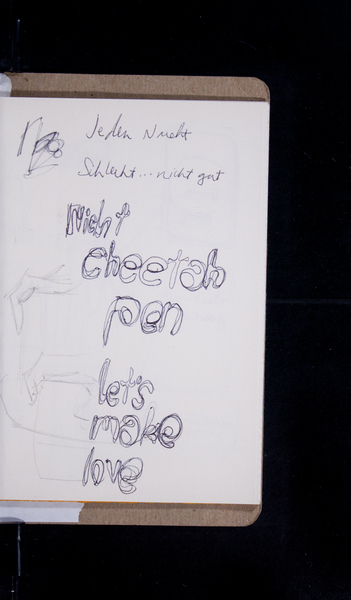 Jeden Nacht
Schlecht... nicht gut
Night
cheetah
pen
let's
make
love